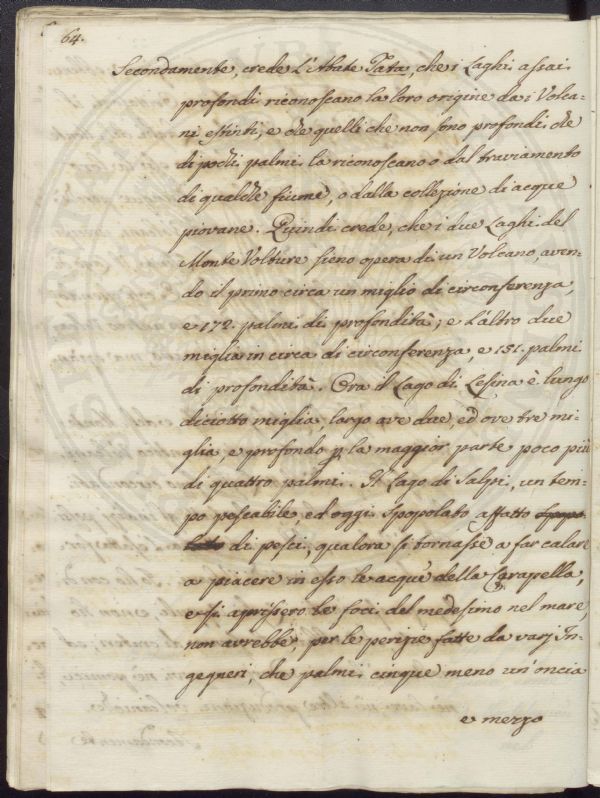 64.
Secondamente, crede L'Abate Tata, che i Laghi assai
profondi riconoscano la loro origine da i Volca-
ni estinti, e che quelli che non sono profondi, che
di pochi palmi la riconoscano o dal traviamento
di qualche fiume, o dalla collezione di acque
piovane. Quindi crede, che i due Laghi del
Monte Volture sieno opera di un Volcano, aven-
do il primo circa un miglio di circonferenza,
e 172. palmi di profondità; e l'altro due
miglia in circa di circonferenza, e 151. palmi
di profondità. Ora il Lago di Lesina è lungo
diciotto miglia, largo ove due, ed ove tre mi-
glia, e profondo p la maggior parte poco più
di quattro palmi. Il Lago di Salpi, un tem-
po pescabile, ed oggi spopolato affatto
di pesci, qualora si tornasse a far calare
a piacere in esso le acque della Carapella,
e si aprissero le foci del medesimo nel mare,
non avrebbe, per le perizie fatte da varj In-
gegneri, che palmi cinque meno un'oncia
e mezzo